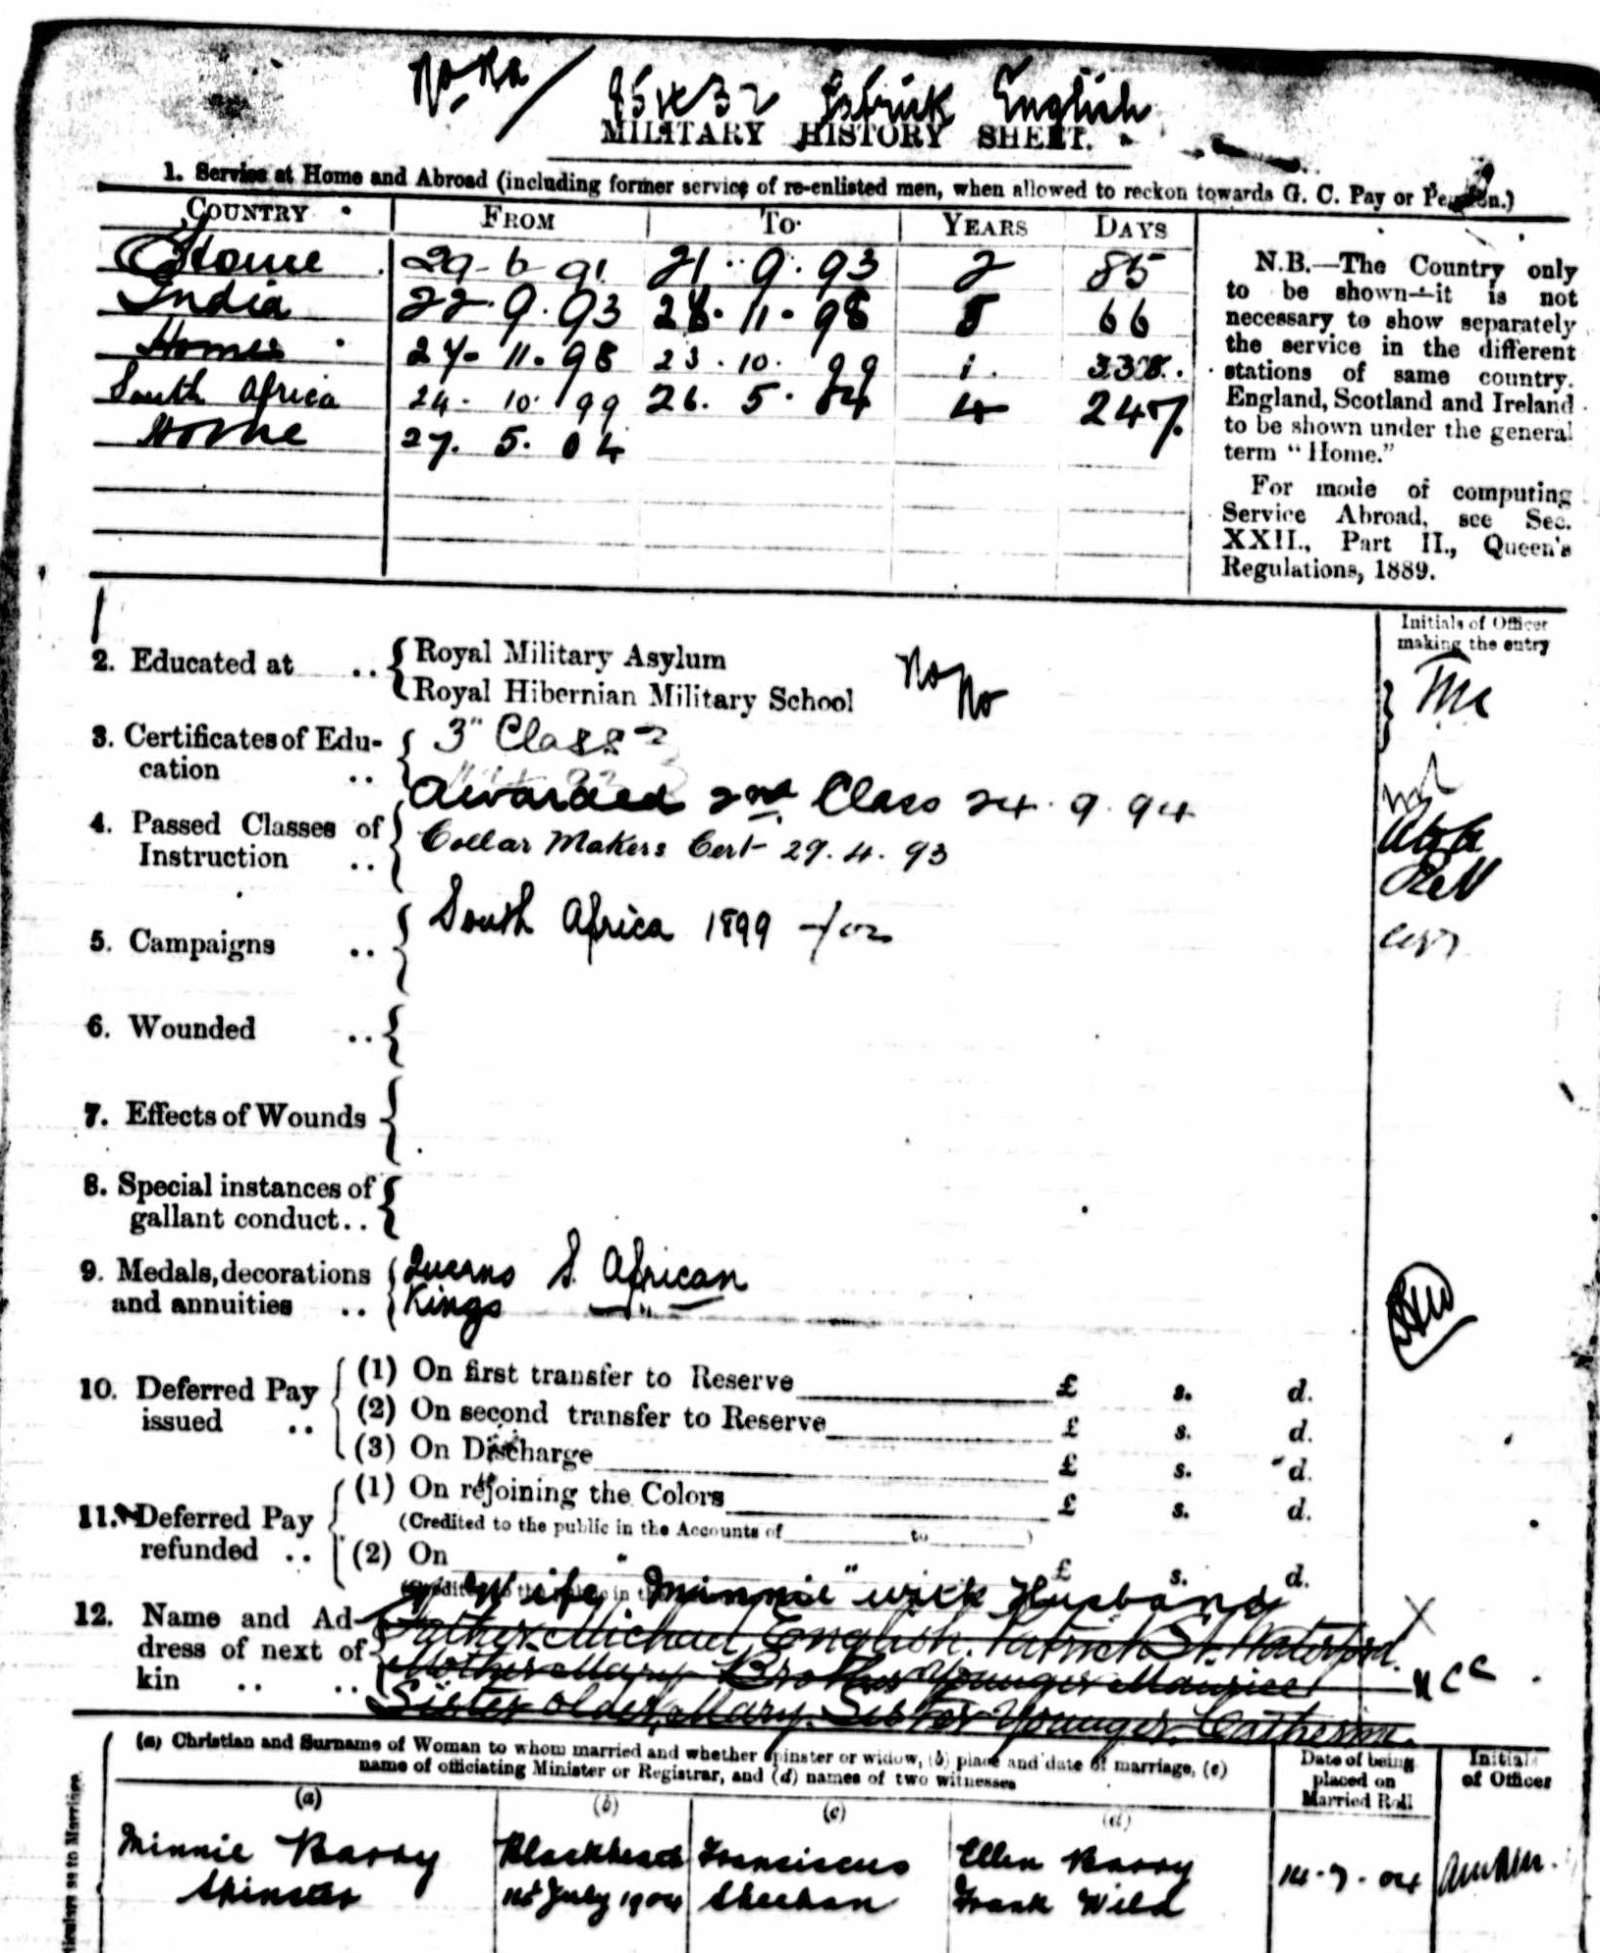 No Ra / 85432 Patrick English
MILITARY HISTORY SHEET.
1. Service at Home and Abroad (including former service of re-enlisted men, when allowed to reckon towards G. C. Pay or Pension.)
COUNTRY FROM TO YEARS DAYS
Home 29-6-91 21.9.93 2 85
India 22.9.93 26.11.98 5 66
Home 27.11.98 23.10.99 1. 338.
South Africa 24.10.99 26.5.04 4 247.
Home 27.5.04
N.B.—The Country only
to be shown—it is not
necessary to show separately
the service in the different
stations of same country.
England, Scotland and Ireland
to be shown under the general
term "Home."
For mode of computing
Service Abroad, see Sec.
XXII., Part II., Queen's
Regulations, 1889.
Initials of Officer
making the entry
2. Educated at .. Royal Military Asylum No
Royal Hibernian Military School No
3. Certificates of Edu-
cation ..
3" Class
Awarded 2nd Class 24.9.94
4. Passed Classes of
Instruction ..
Collar Makers Cert 29.4.93
5. Campaigns .. South Africa 1899
6. Wounded ..
7. Effects of Wounds
8. Special instances of
gallant conduct..
9. Medals, decorations
and annuities ..
Queens S. African
Kings — " —
10. Deferred Pay
issued ..
(1) On first transfer to Reserve £ s. d.
(2) On second transfer to Reserve £ s. d.
(3) On Discharge £ s. d.
11. Deferred Pay
refunded ..
(1) On rejoining the Colors £ s. d.
(Credited to the public in the Accounts of to )
(2) On " £ s. d.
Wife "Minnie" with Husband
12. Name and Ad-
dress of next of
kin .. ..
Father Michael English. Patrick St. Waterford.
Mother Mary Brother Younger Maurice
Sister older, Mary. Sister Younger. Catherine.
(a) Christian and Surname of Woman to whom married and whether spinster or widow, (b) place and date of marriage, (c)
name of officiating Minister or Registrar, and (d) names of two witnesses
Date of being
placed on
Married Roll
Initials
of Officer
(a) (b) (c) (d)
Minnie Barry Blackheath Franciscus Ellen Barry 14-7-04
Spinster 1st July 1904 Sheehan Frank Wild